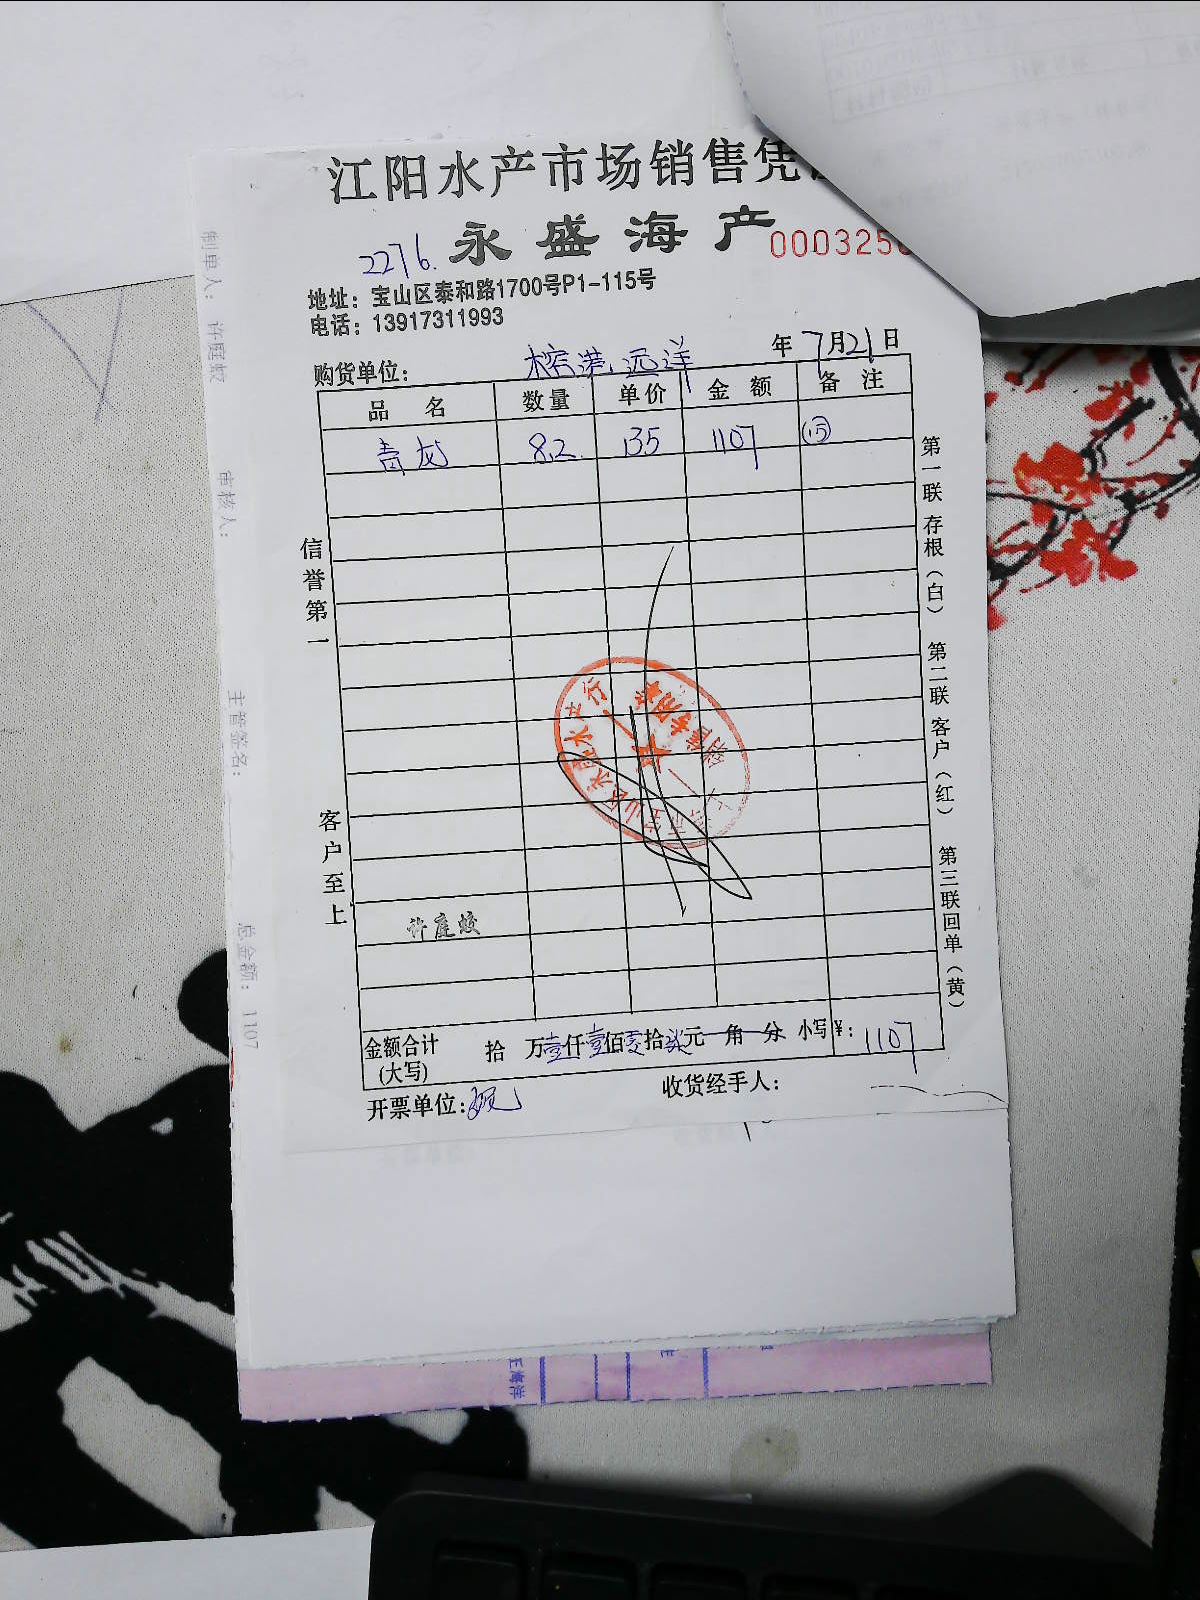 江阳水产市场销售凭
2276.
永盛海产
000325
地址：宝山区泰和路1700号P1-115号
电话：13917311993
购货单位： 榕港远洋 年7月21日
品名 数量 单价 金额 备注
青龙 8.2 135 1107
信誉第一
客户至上
第一联存根（白） 第二联客户（红） 第三联回单（黄）
许庭蛟
金额合计(大写) 拾 万壹仟壹佰零拾柒元 角 分 小写¥：1107
开票单位：
收货经手人：
制单人： 许庭蛟
审核人：
主管签名：
总金额： 1107